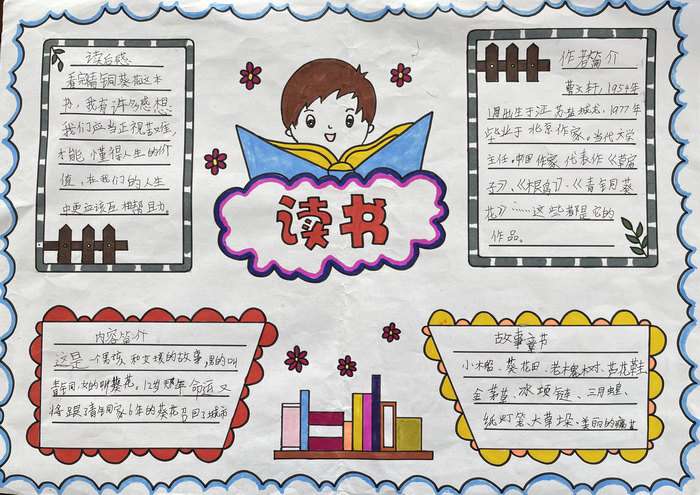 读后感
看完青铜葵花这本
书,我有许多感想
我们应当正视苦难,
才能懂得人生的价
值,在我们的人生
中更应该互相帮助。
作者简介
曹文轩,1954年
1月出生于江苏盐城,1977年
毕业于北京作家。当代大学
主任。中国作家,代表作《草房
子》、《根鸟》、《青铜葵
花》……这些都是它的
作品。
读书
内容简介
这是一个男孩和女孩的故事,男的叫
青铜,女的叫葵花,12岁那年命运又
将跟了青铜家的葵花召回了城市
故事章节
小木船、葵花田、老槐树、芦花鞋
金茅草、冰项链、三月蝗
纸灯笼、大草垛、美丽的痛苦